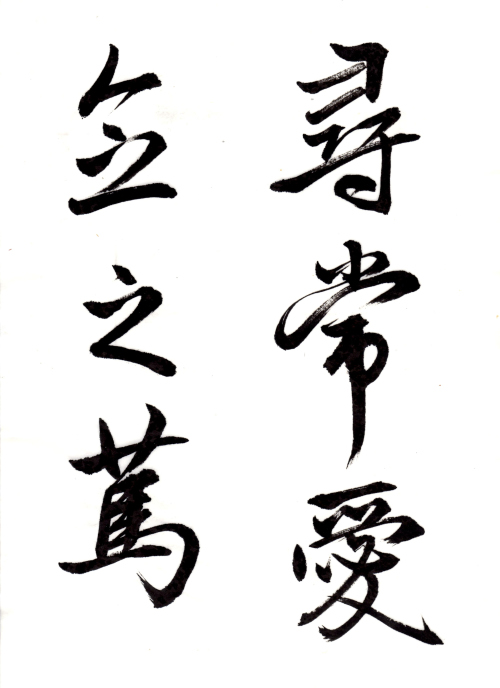 尋常愛
企之篤